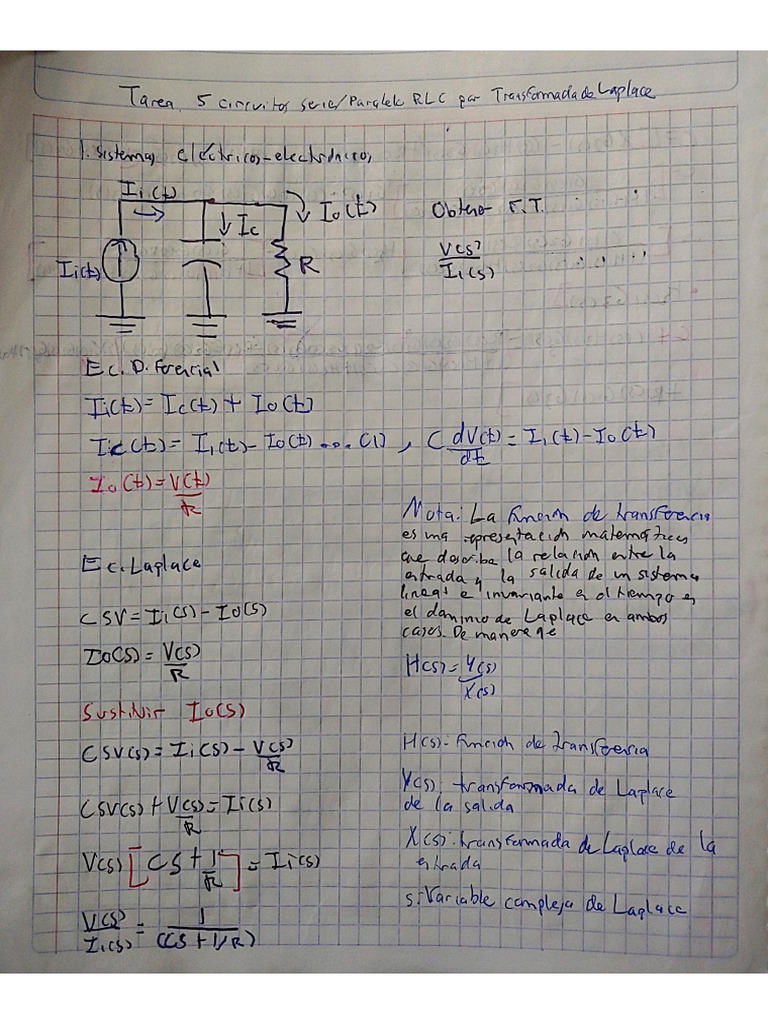 Tarea 5 circuitos serie/Paralelo RLC por Transformada de Laplace
1. Sistemas eléctricos-electrónicos
Ii(t)
Io(t)
Ic
Ii(t)
R
Obtener F.T.
V(s)
Ii(s)
Ec. Diferencial
Ii(t) = Ic(t) + Io(t)
Ic(t) = Ii(t) - Io(t) ... (1) , C dV(t)/dt = Ii(t) - Io(t)
Io(t) = V(t)/R
Ec. Laplace
CSV = Ii(s) - Io(s)
Io(s) = V(s)/R
Sustituir Io(s)
CSV(s) = Ii(s) - V(s)/R
CSV(s) + V(s)/R = Ii(s)
V(s) [CS + 1/R] = Ii(s)
V(s)/Ii(s) = 1/(CS + 1/R)
Nota: La función de transferencia
es una representación matemática
que describe la relación entre la
entrada y la salida de un sistema
lineal e invariante en el tiempo en
el dominio de Laplace en ambos
casos. De manera qe
H(s) = Y(s)/X(s)
H(s): Función de transferencia
Y(s): transformada de Laplace
de la salida
X(s): transformada de Laplace de la
entrada
s: Variable compleja de Laplace